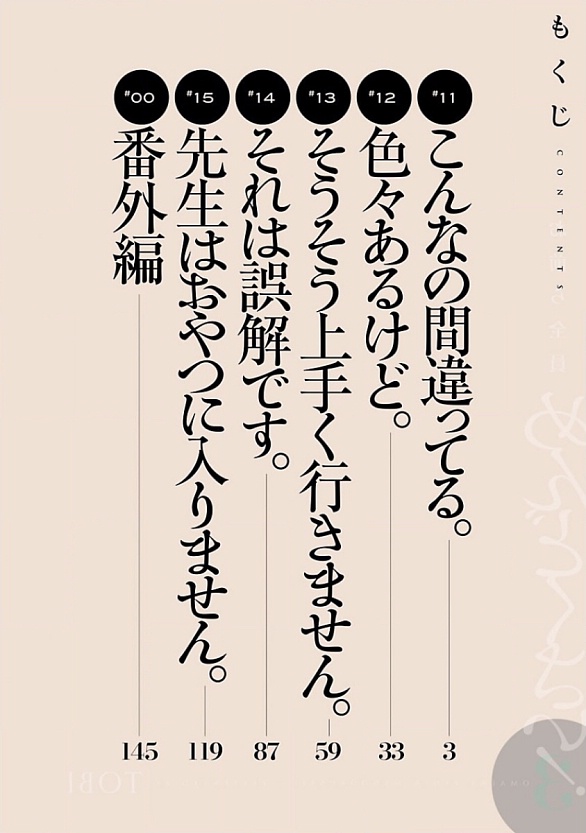 もくじ
CONTENTS
#11
こんなの間違ってる。
3
#12
色々あるけど。
33
#13
そうそう上手く行きません。
59
#14
それは誤解です。
87
#15
先生はおやつに入りません。
119
#00
番外編
145
TOBI